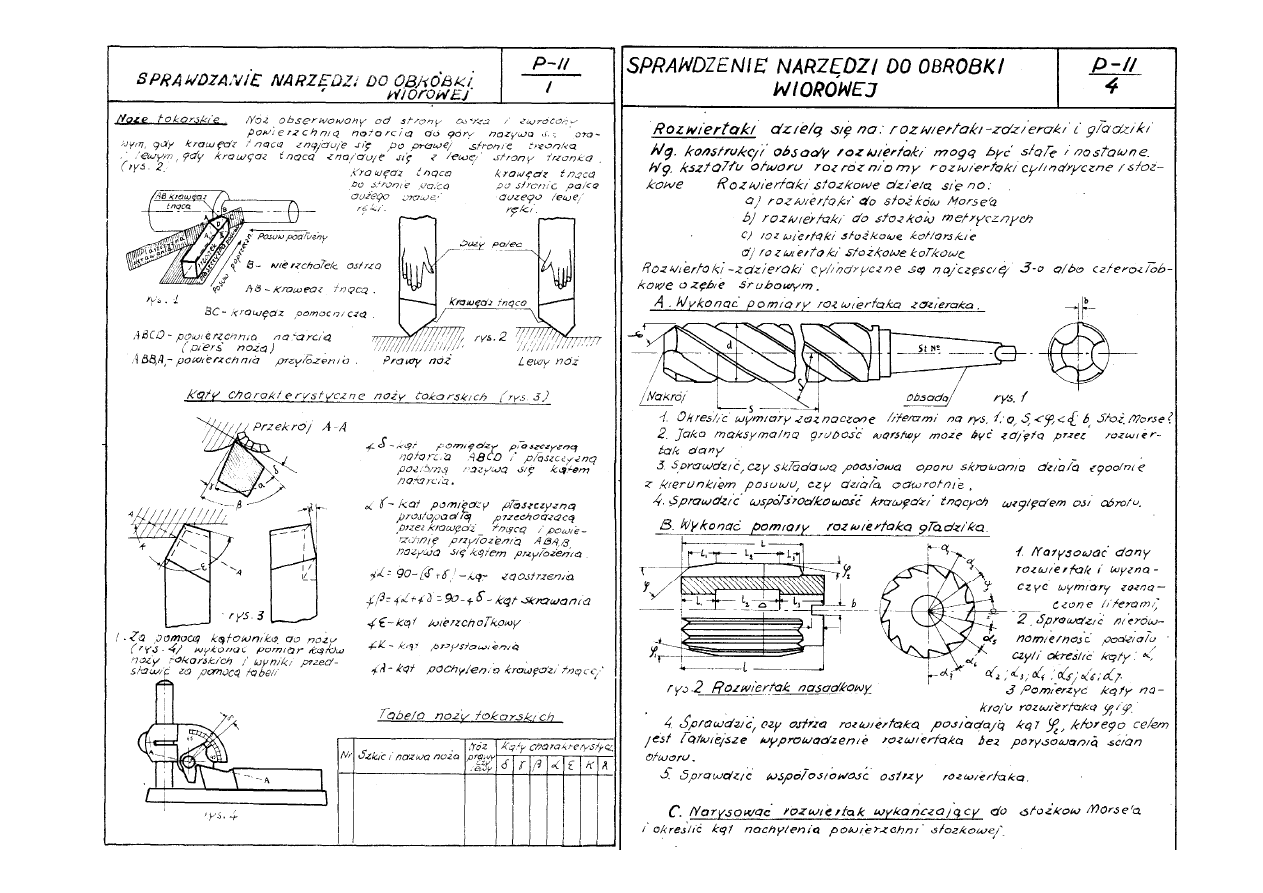 SPRAWDZANIE NARZĘDZI DO OBRÓBKI
WIOROWEJ
P-II
1
Noże tokarskie. Nóż obserwowany od strony ostrza i zwrócony
powierzchnią natarcia do góry nazywa się pra-
wym, gdy krawędź tnąca znajduje się po prawej stronie trzonka
i lewym, gdy krawędź tnąca znajduje się z lewej strony trzonka.
(rys. 2.
Krawędź tnąca
po stronie palca
dużego prawej
ręki.
krawędź tnąca
po stronie palca
dużego lewej
ręki.
AB krawędź
tnąca
Posuw podłużny
Posuw poprzeczn.
rys. 1
B- wierzchołek ostrza
AB-krawędź tnąca.
BC-krawędź pomocnicza.
ABCD-powierzchnia natarcia
(pierś noża)
ABB₁A₁-powierzchnia przyłożenia.
Duży palec
Krawędź tnąca
rys. 2
Prawy nóż
Lewy nóż
Kąty charakterystyczne noży tokarskich (rys. 3)
Przekrój A-A
rys. 3
∢δ-kąt pomiędzy płaszczyzną
natarcia ABCD i płaszczyzną
poziomą nazywa się kątem
natarcia.
∢γ-kąt pomiędzy płaszczyzną
prostopadłą przechodzącą
przez krawędź tnącą i powie-
rzchnię przyłożenia ABA₁B₁
nazywa się kątem przyłożenia.
∢α=90-(δ+γ)-kąt zaostrzenia
∢β=∢α+∢γ=90-∢δ-kąt skrawania
∢ε-kąt wierzchołkowy
∢K-kąt przystawienia
∢λ-kąt pochylenia krawędzi tnącej
1. Za pomocą kątownika do noży
(rys. 4) wykonać pomiar kątów
noży tokarskich i wyniki przed-
stawić za pomocą tabeli
A
rys. 4
Tabela noży tokarskich
Nr
Szkic i nazwa noża
Nóż
prawy
lewy
Kąty charakterystycz.
δ γ β α ε K λ
SPRAWDZENIE NARZĘDZI DO OBROBKI
WIOROWEJ
P-II
4
Rozwiertaki dzielą się na: rozwiertaki-zdzieraki i gładziki
Wg. konstrukcji obsady rozwiertaki mogą być stałe i nastawne.
Wg. kształtu otworu rozróżniamy rozwiertaki cylindryczne i stoż-
kowe Rozwiertaki stożkowe dzielą się na:
a) rozwiertaki do stożków Morse'a
b) rozwiertaki do stożków metrycznych
c) rozwiertaki stożkowe kotlarskie
d) rozwiertaki stożkowe kołkowe
Rozwiertaki-zdzieraki cylindryczne są najczęsciej 3-o albo czterozłob-
kowe o zębie śrubowym.
A. Wykonać pomiary rozwiertaka zdzieraka.
b
d
St Nº
S
Nakrój
obsada
rys. 1
1. Określić wymiary zaznaczone literami na rys. 1: a, S, ∢φ, ∢ξ b, Stoż. Morse?
2. Jaka maksymalna grubość warstwy może być zdjęta przez rozwier-
tak dany
3. Sprawdzić, czy składawa poosiowa oporu skrawania działa zgodnie
z kierunkiem posuwu, czy działa odwrotnie.
4. Sprawdzić współśrodkowość krawędzi tnących względem osi obrotu.
B. Wykonać pomiary rozwiertaka gładzika.
L
L₁ L₂ L₃
φ
φ₂
l₁ l₂ l₃
b
D
φ₁
l
rys. 2 Rozwiertak nasadkowy
1. Narysować dany
rozwiertak i wyzna-
czyć wymiary zazna-
czone literami,
2. Sprawdzić nierów-
nomierność podziału
czyli określić kąty: α₁
α₂; α₃; α₄; α₅; α₆; α₇.
3 Pomierzyć kąty na-
kroju rozwiertaka φ i φ₁
4. Sprawdzić, czy ostrza rozwiertaka posiadają kąt φ₂, którego celem
jest łatwiejsze wyprowadzenie rozwiertaka bez porysowania ścian
otworu.
5. Sprawdzić współosiowość ostrzy rozwiertaka.
C. Narysować rozwiertak wykańczający do stożków Morse'a
i określić kąt nachylenia powierzchni stożkowej.